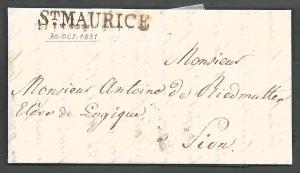 ST MAURICE
30.OCT.1831
Monsieur
Monsieur Antoine de Riedmatten
Elève de Logique
à Sion.